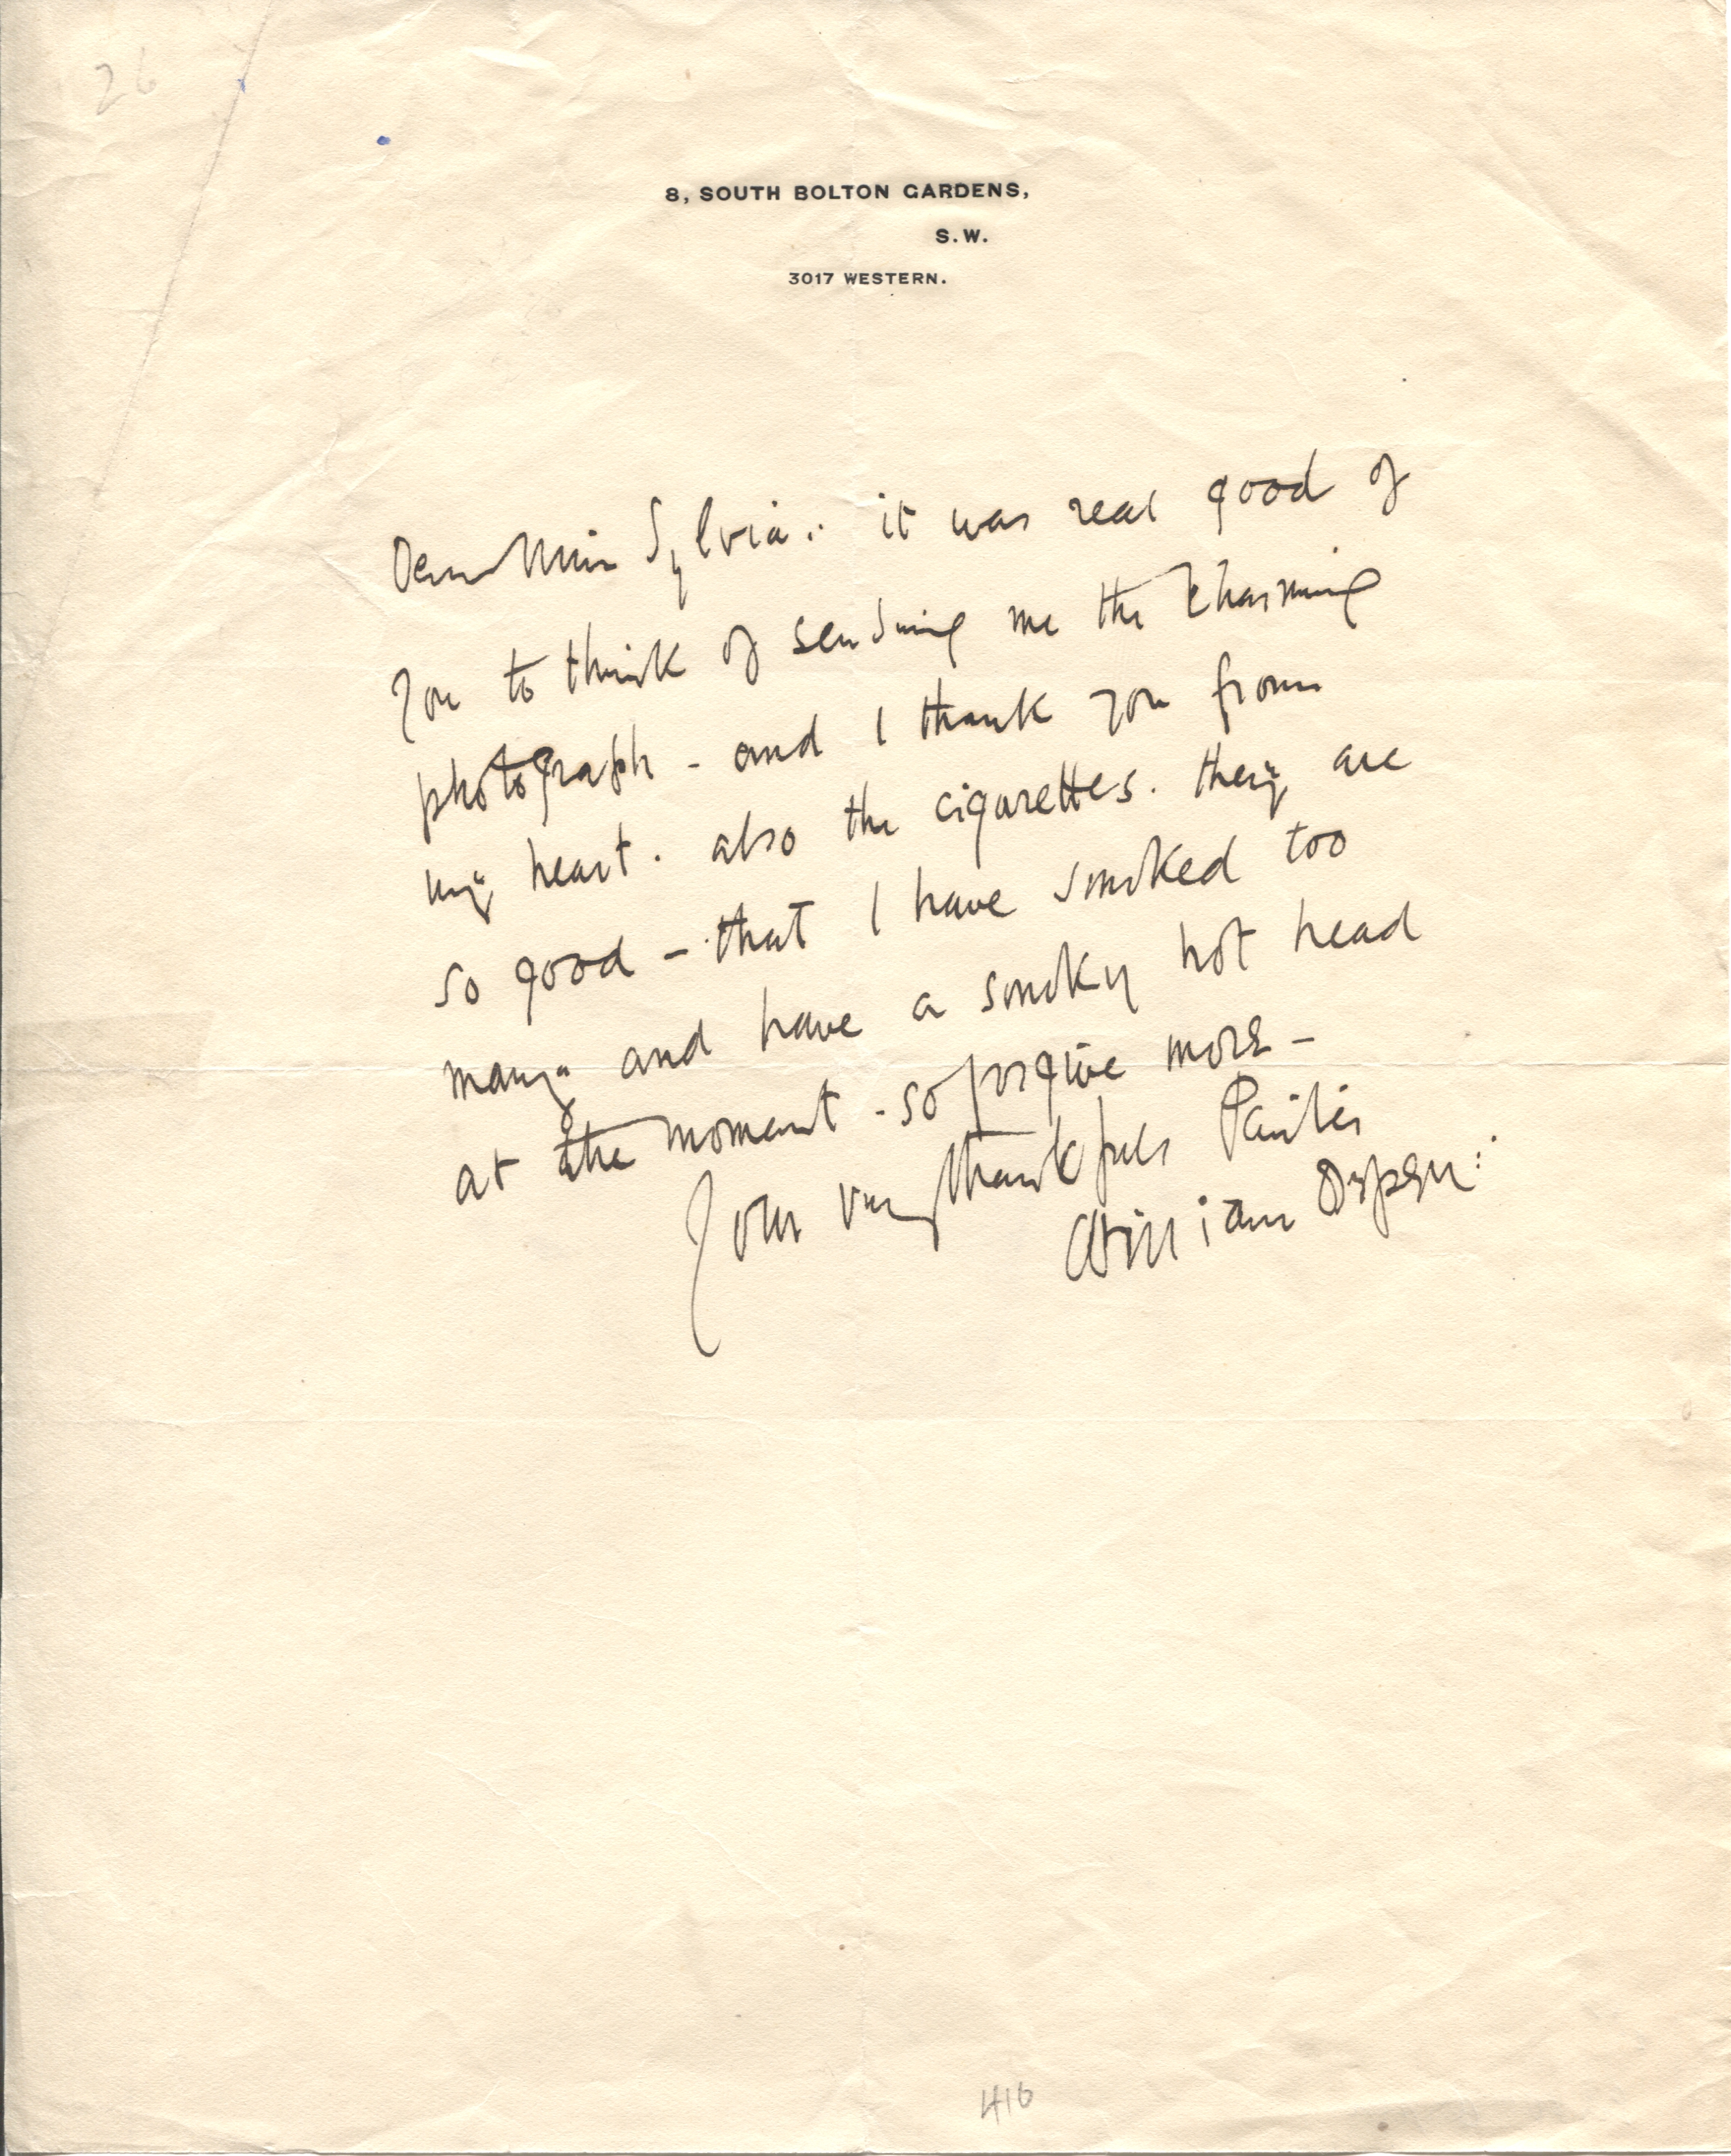 26
8, SOUTH BOLTON GARDENS,
S.W.
3017 WESTERN.
Dear Miss Sylvia: it was real good of
you to think of sending me the charming
photograph - and I thank you from
my heart. also the cigarettes. they are
so good - that I have smoked too
many and have a smoky hot head
at the moment - so forgive more -
Your very thankful Painter
William Orpen:
416